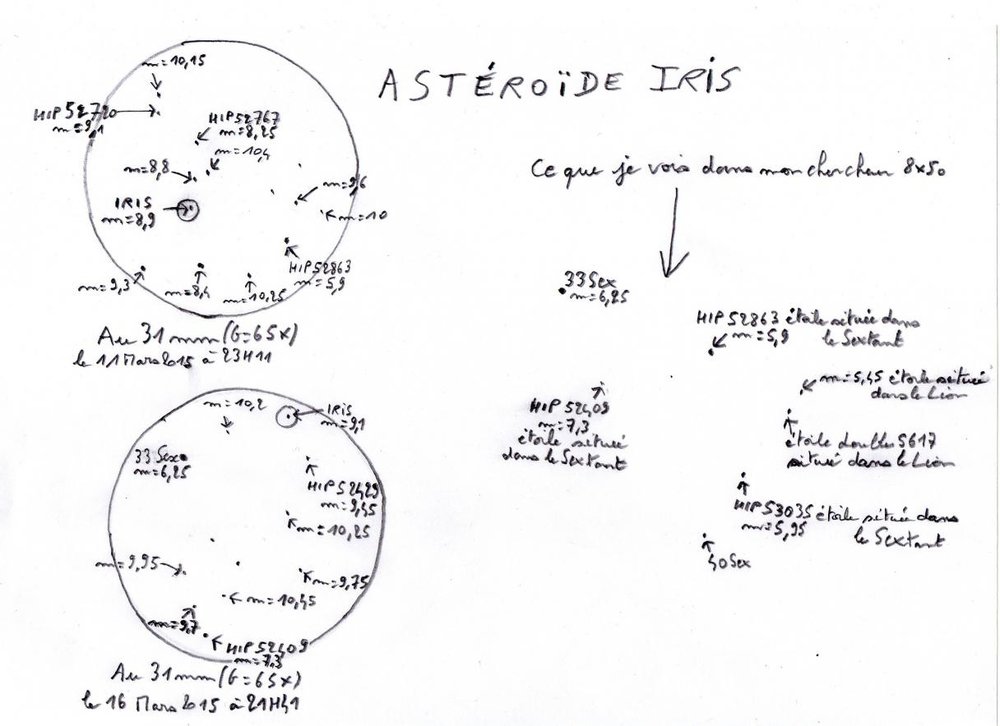 ASTÉROÏDE IRIS
m=10,15
HIP 52720
m=9,1
HIP 52767
m=8,25
m=10,4
m=8,8
IRIS
m=8,9
m=9,6
m=10
HIP 52863
m=5,9
m=9,3
m=8,4
m=10,25
Au 31mm (G=65X)
le 11 Mars 2015 à 23H11
m=10,2
IRIS
m=9,1
33 Sex
m=6,25
HIP 52429
m=9,45
m=10,25
m=9,95
m=9,75
m=10,45
m=9,7
HIP 52409
m=7,3
Au 31mm (G=65X)
le 16 Mars 2015 à 21H41
Ce que je vois dans mon chercheur 8x50
33 Sex
m=6,25
HIP 52863 étoile située dans
m=5,9 le Sextant
m=5,45 étoile située
dans le Lion
HIP 52409
m=7,3
étoile située
dans le Sextant
étoile double S617
située dans le Lion
HIP 53035 étoile située dans
m=5,95 le Sextant
40 Sex